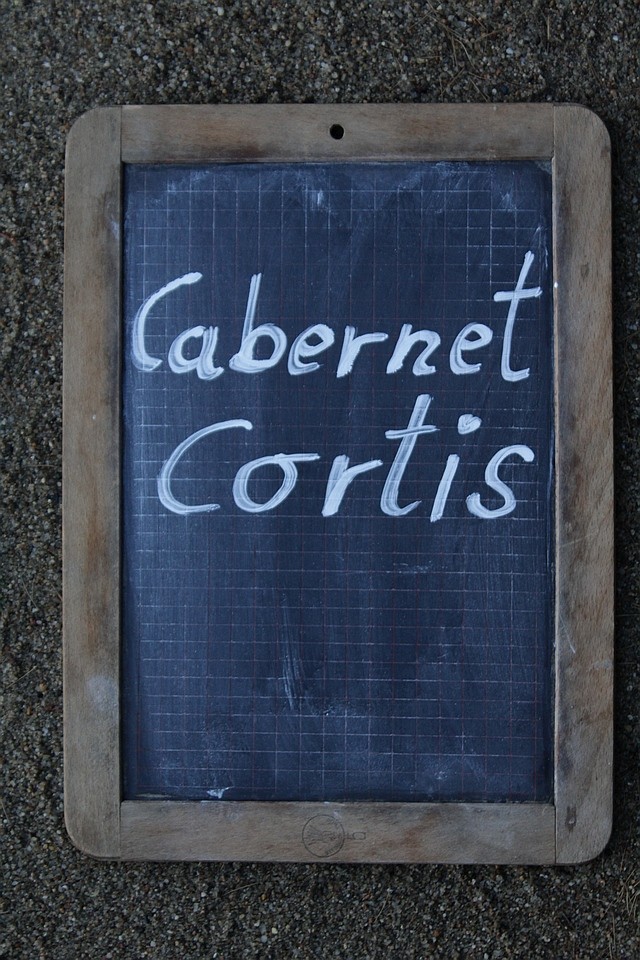 Cabernet
Cortis